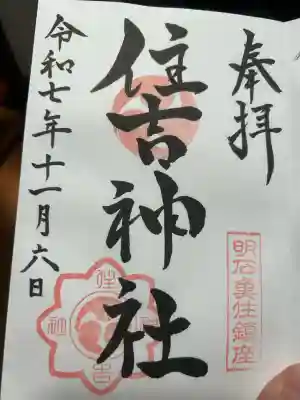 奉拝
明石裏住鎮座
住吉神社
令和七年十一月六日
住
吉
神
社